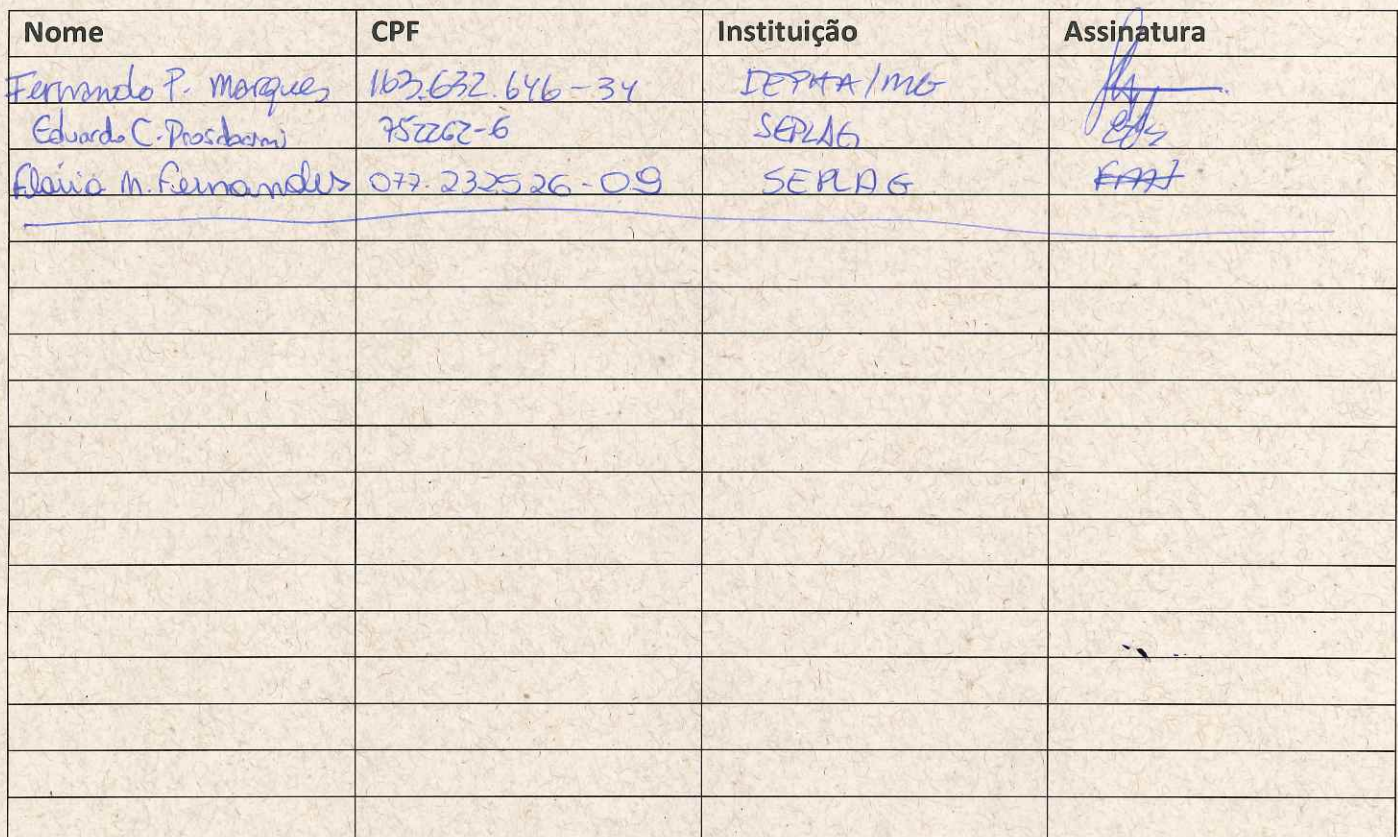 Nome CPF Instituição Assinatura
Fernando P. Marques 163.632.646-34 IEPHA/MG
Eduardo C. 752262-6 SEPLAG
Flávia M. Fernandes 077.232526-09 SEPLAG